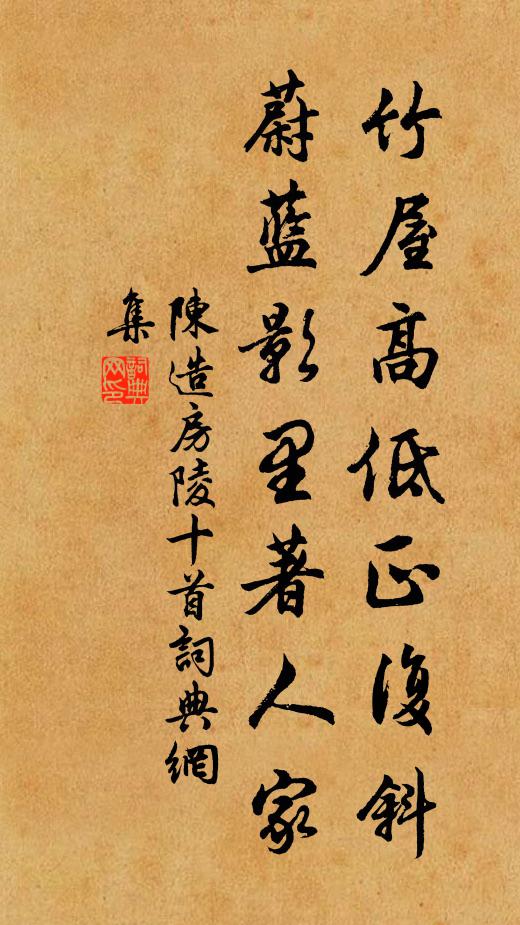 竹屋高低正復斜
蔚藍影里著人家
陳造房陵十首詞典網
集
詞典网印